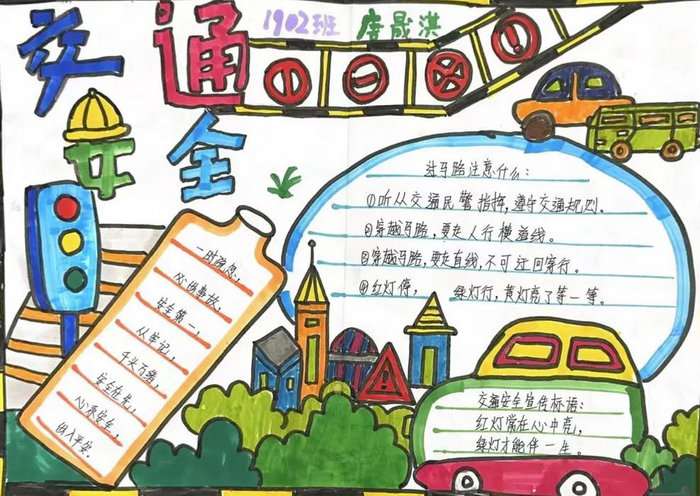 交通
安全
1902班
过马路注意什么：
①听从交通民警指挥，遵守交通规则。
②穿越马路，要走人行横道线。
③穿越马路，要走直线，不可迂回穿行。
④红灯停， 绿灯行，黄灯亮了等一等。
一时疏忽，
安全第一，
从牢记，
千头万绪，
安全在先，
心系安全，
出入平安。
交通安全宣传标语：
红灯常在心中亮，
绿灯才能伴一生。